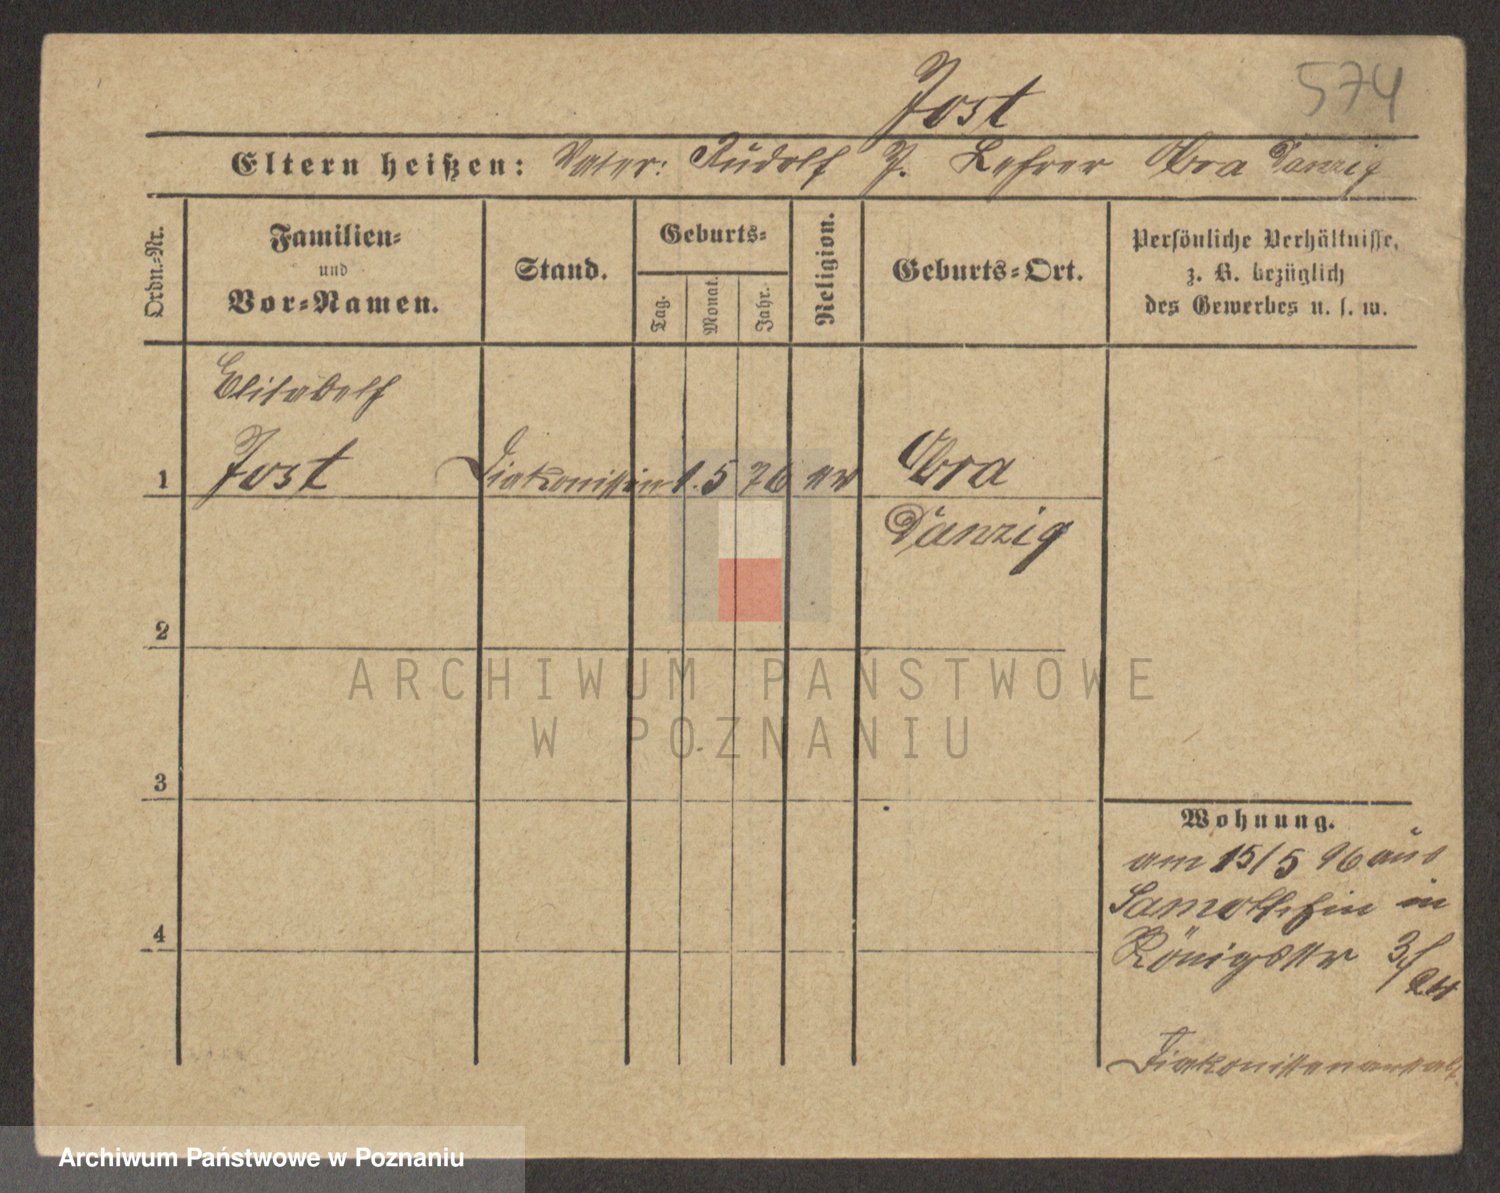 Jost
574
Eltern heißen: Vater: Rudolf J. Lehrer Ohra Danzig
Ordn.-Nr.
Familien-
und
Vor-Namen.
Stand.
Geburts-
Tag.
Monat.
Jahr.
Religion.
Geburts-Ort.
Persönliche Verhältnisse,
z. B. bezüglich
des Gewerbes u. s. w.
Elisabeth
1 Jost Diakonissin 1. 5 76 ev Ohra
Danzig
2
3
4
Wohnung.
am 15/5 96 aus
in
Königsstr 3/
24
Diakonissenanstalt
ARCHIWUM PAŃSTWOWE
W POZNANIU
Archiwum Państwowe w Poznaniu